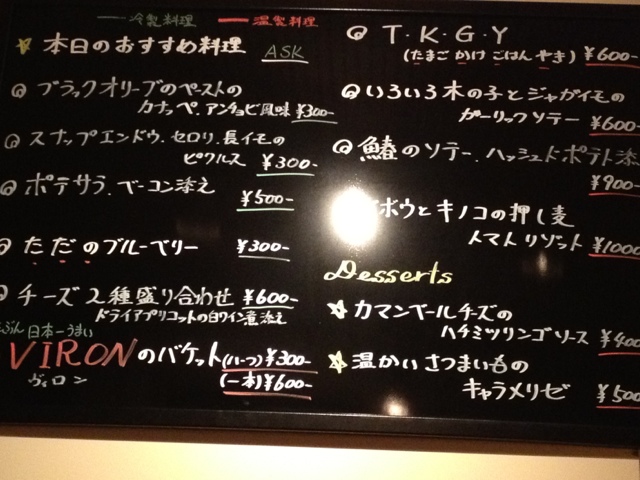 冷製料理 温製料理
本日のおすすめ料理 ASK
ブラックオリーブのペーストの
カナッペ、アンチョビ風味 ¥300-
スナップエンドウ、セロリ、長イモの
ピクルス ¥300-
ポテサラ、ベーコン添え
¥500-
ただのブルーベリー ¥300-
チーズ2種盛り合わせ ¥600-
ドライアプリコットの白ワイン煮添え
たぶん日本一うまい
VIRONのバゲット(ハーフ)¥300-
ヴィロン (一本)¥600-
T・K・G・Y
(たまご かけ ごはん やき) ¥600-
いろいろ木の子とジャガイモの
ガーリックソテー ¥600-
鰆のソテー、ハッシュドポテト添
¥900-
ボウとキノコの押し麦
トマトリゾット ¥1000
Desserts
カマンベールチーズの
ハチミツリンゴソース ¥400
温かいさつまいもの
キャラメリゼ ¥500